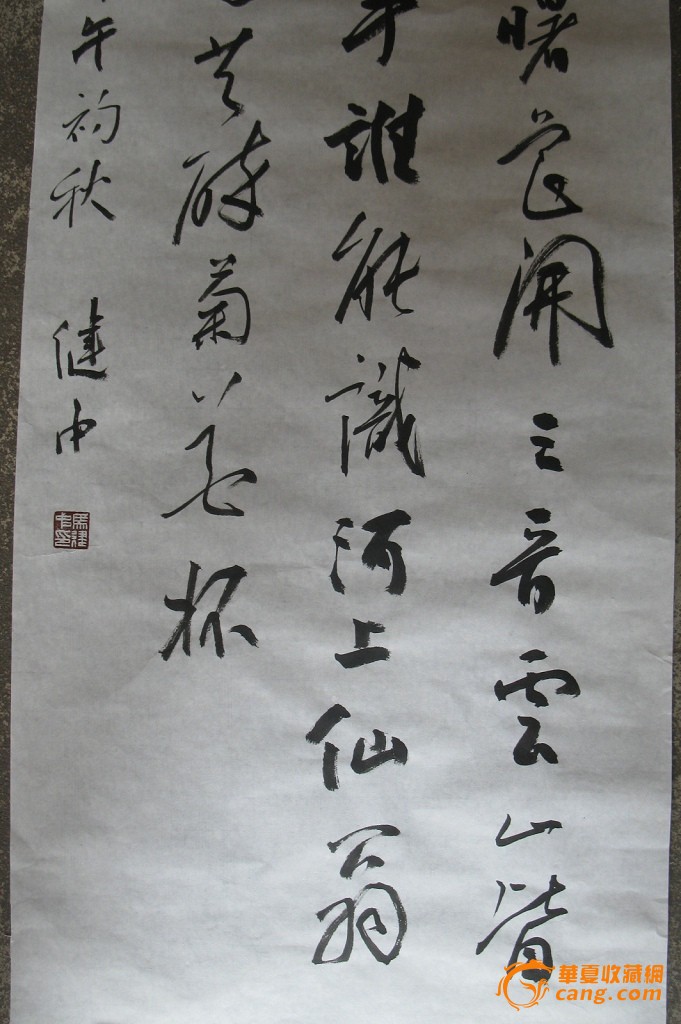 曙色開三晋雲山皆
誰能識河上仙翁
共醉菊花杯
午初秋 健中
馬健中印
華夏收藏網
cang.com